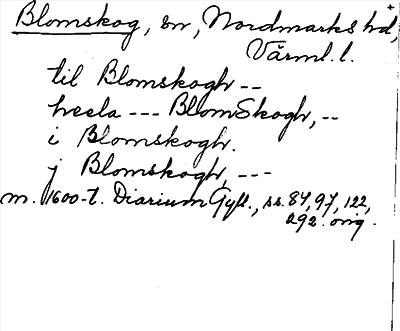 Blomskog, sn, Nordmarks hd,
Värml. l.
til Blomskogh --
heela --- BlomSkogh, --
i Blomskogh.
j Blomskogh, ---
m. 1600-t. Diarium Gyll., ss. 84, 97, 122,
292 orig.